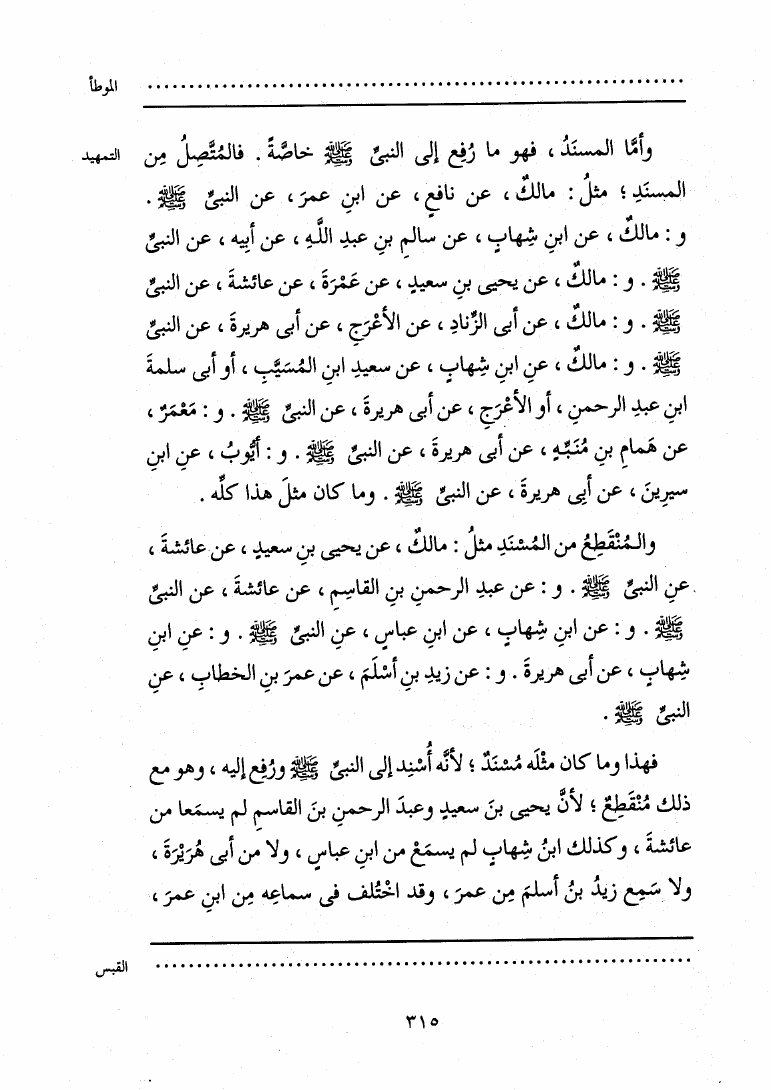 الموطأ ..........
وأمَّا المسنَدُ ، فهو ما رُفِع إلى النبىِّ ﷺ خاصَّةً . فالمُتَّصِلُ مِن التمهيد
المسنَدِ ؛ مثلُ : مالكٌ ، عن نافعٍ ، عن ابنِ عمرَ ، عن النبىِّ ﷺ .
و : مالكٌ ، عن ابنِ شِهابٍ ، عن سالمِ بنِ عبدِ اللَّهِ ، عن أبِيه ، عن النبىِّ
ﷺ . و : مالكٌ ، عن يحيى بنِ سعيدٍ ، عن عَمْرَةَ ، عن عائشةَ ، عن النبىِّ
ﷺ . و : مالكٌ ، عن أبى الزِّنادِ ، عن الأعْرَجِ ، عن أبى هريرةَ ، عن النبىِّ
ﷺ . و : مالكٌ ، عنِ ابنِ شِهابٍ ، عن سعيدِ ابنِ المُسَيَّبِ ، أو أبى سلمةَ
ابنِ عبدِ الرحمنِ ، أو الأعْرَجِ ، عن أبى هريرةَ ، عن النبىِّ ﷺ . و : مَعْمَرٌ ،
عن هَمامِ بنِ مُنَبِّهٍ ، عن أبى هريرةَ ، عن النبىِّ ﷺ . و : أيُّوبُ ، عنِ ابنِ
سيرِينَ ، عن أبِى هريرةَ ، عن النبىِّ ﷺ . وما كان مثلَ هذا كلِّه .
والمُنْقَطِعُ من المُسْنَدِ مثلُ : مالكٌ ، عن يحيى بنِ سعيدٍ ، عن عائشةَ ،
عنِ النبىِّ ﷺ . و : عن عبدِ الرحمنِ بنِ القاسِمِ ، عن عائشةَ ، عن النبىِّ
ﷺ . و : عن ابنِ شِهابٍ ، عن ابنِ عباسٍ ، عنِ النبىِّ ﷺ . و : عنِ ابنِ
شِهابٍ ، عن أبى هريرةَ . و : عن زيدِ بنِ أسْلَمَ ، عن عمرَ بنِ الخطابِ ، عنِ
النبىِّ ﷺ .
فهذا وما كان مثْلَه مُسْنَدٌ ؛ لأنَّه أُسْنِد إلى النبىِّ ﷺ ورُفِع إليه ، وهو مع
ذلك مُنْقَطِعٌ ؛ لأنَّ يحيى بنَ سعيدٍ وعبدَ الرحمنِ بنَ القاسمِ لم يسمَعا من
عائشةَ ، وكذلك ابنُ شِهابٍ لم يسمَعْ من ابنِ عباسٍ ، ولا من أبى هُرَيْرَةَ ،
ولا سَمِع زيدُ بنُ أسلمَ مِن عمرَ ، وقد اخْتُلف فى سماعِه مِن ابنِ عمرَ ،
القبس ..........
٣١٥